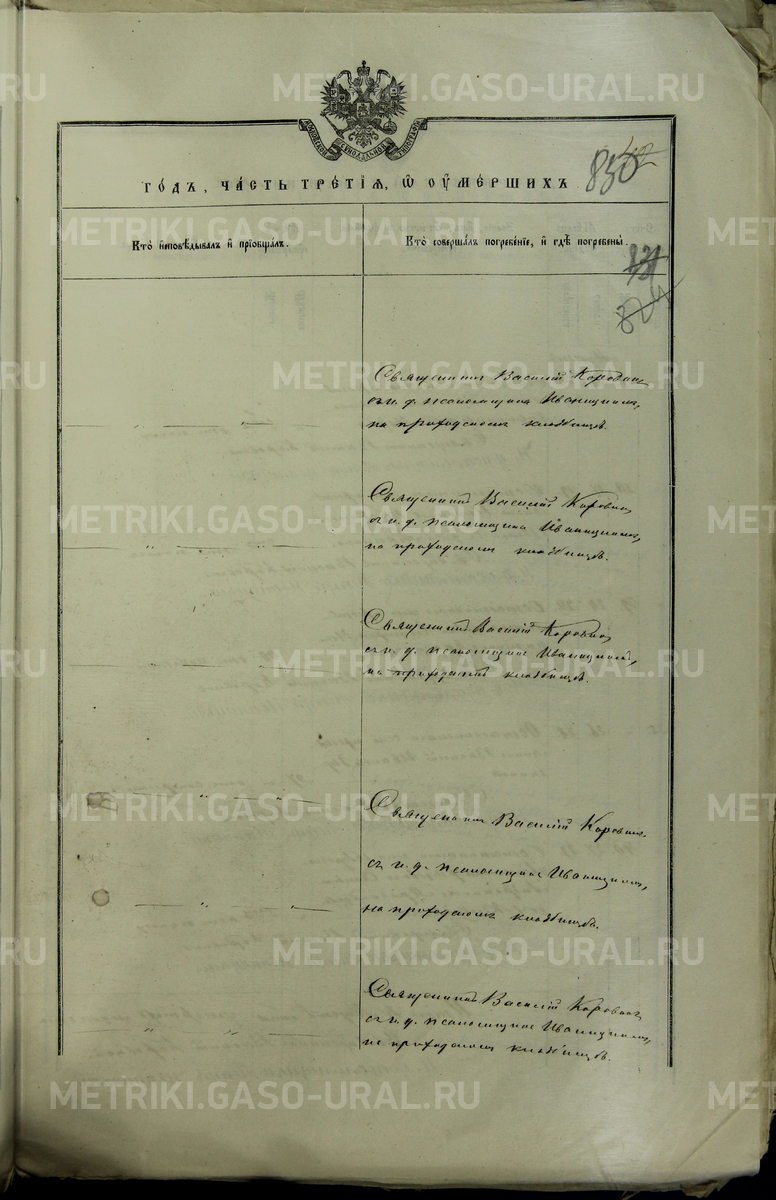 МОСКОВСКОЙ СѴНОДАЛЬНОЙ ТИПОГРАФІИ
ГОДЪ, ЧАСТЬ ТРЕТІЯ, Ѡ ОУМЕРШИХЪ
850
Кто исповѣдывалъ и пріобщалъ.
Кто совершалъ погребеніе, и гдѣ погребены.
824
Священникъ Василій Коровинъ
съ и. д. псаломщика Иваницкимъ,
на приходскомъ кладбищѣ.
Священникъ Василій Коровинъ
съ и. д. псаломщика Иваницкимъ,
на приходскомъ кладбищѣ.
Священникъ Василій Коровинъ
съ и. д. псаломщика Иваницкимъ,
на приходскомъ кладбищѣ.
Священникъ Василій Коровинъ
съ и. д. псаломщика Иваницкимъ,
на приходскомъ кладбищѣ.
Священникъ Василій Коровинъ
съ и. д. псаломщика Иваницкимъ,
на приходскомъ кладбищѣ.
METRIKI.GASO-URAL.RU